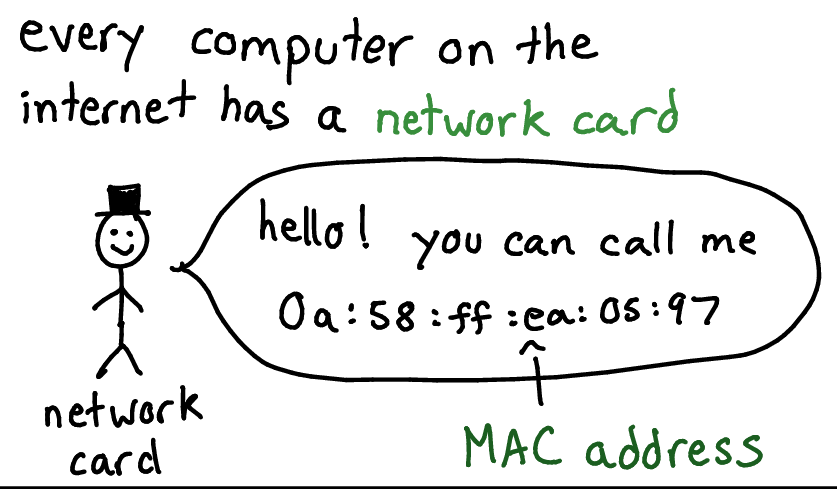 every computer on the
internet has a network card
hello! you can call me
0a:58:ff:ea:05:97
network
card
MAC address